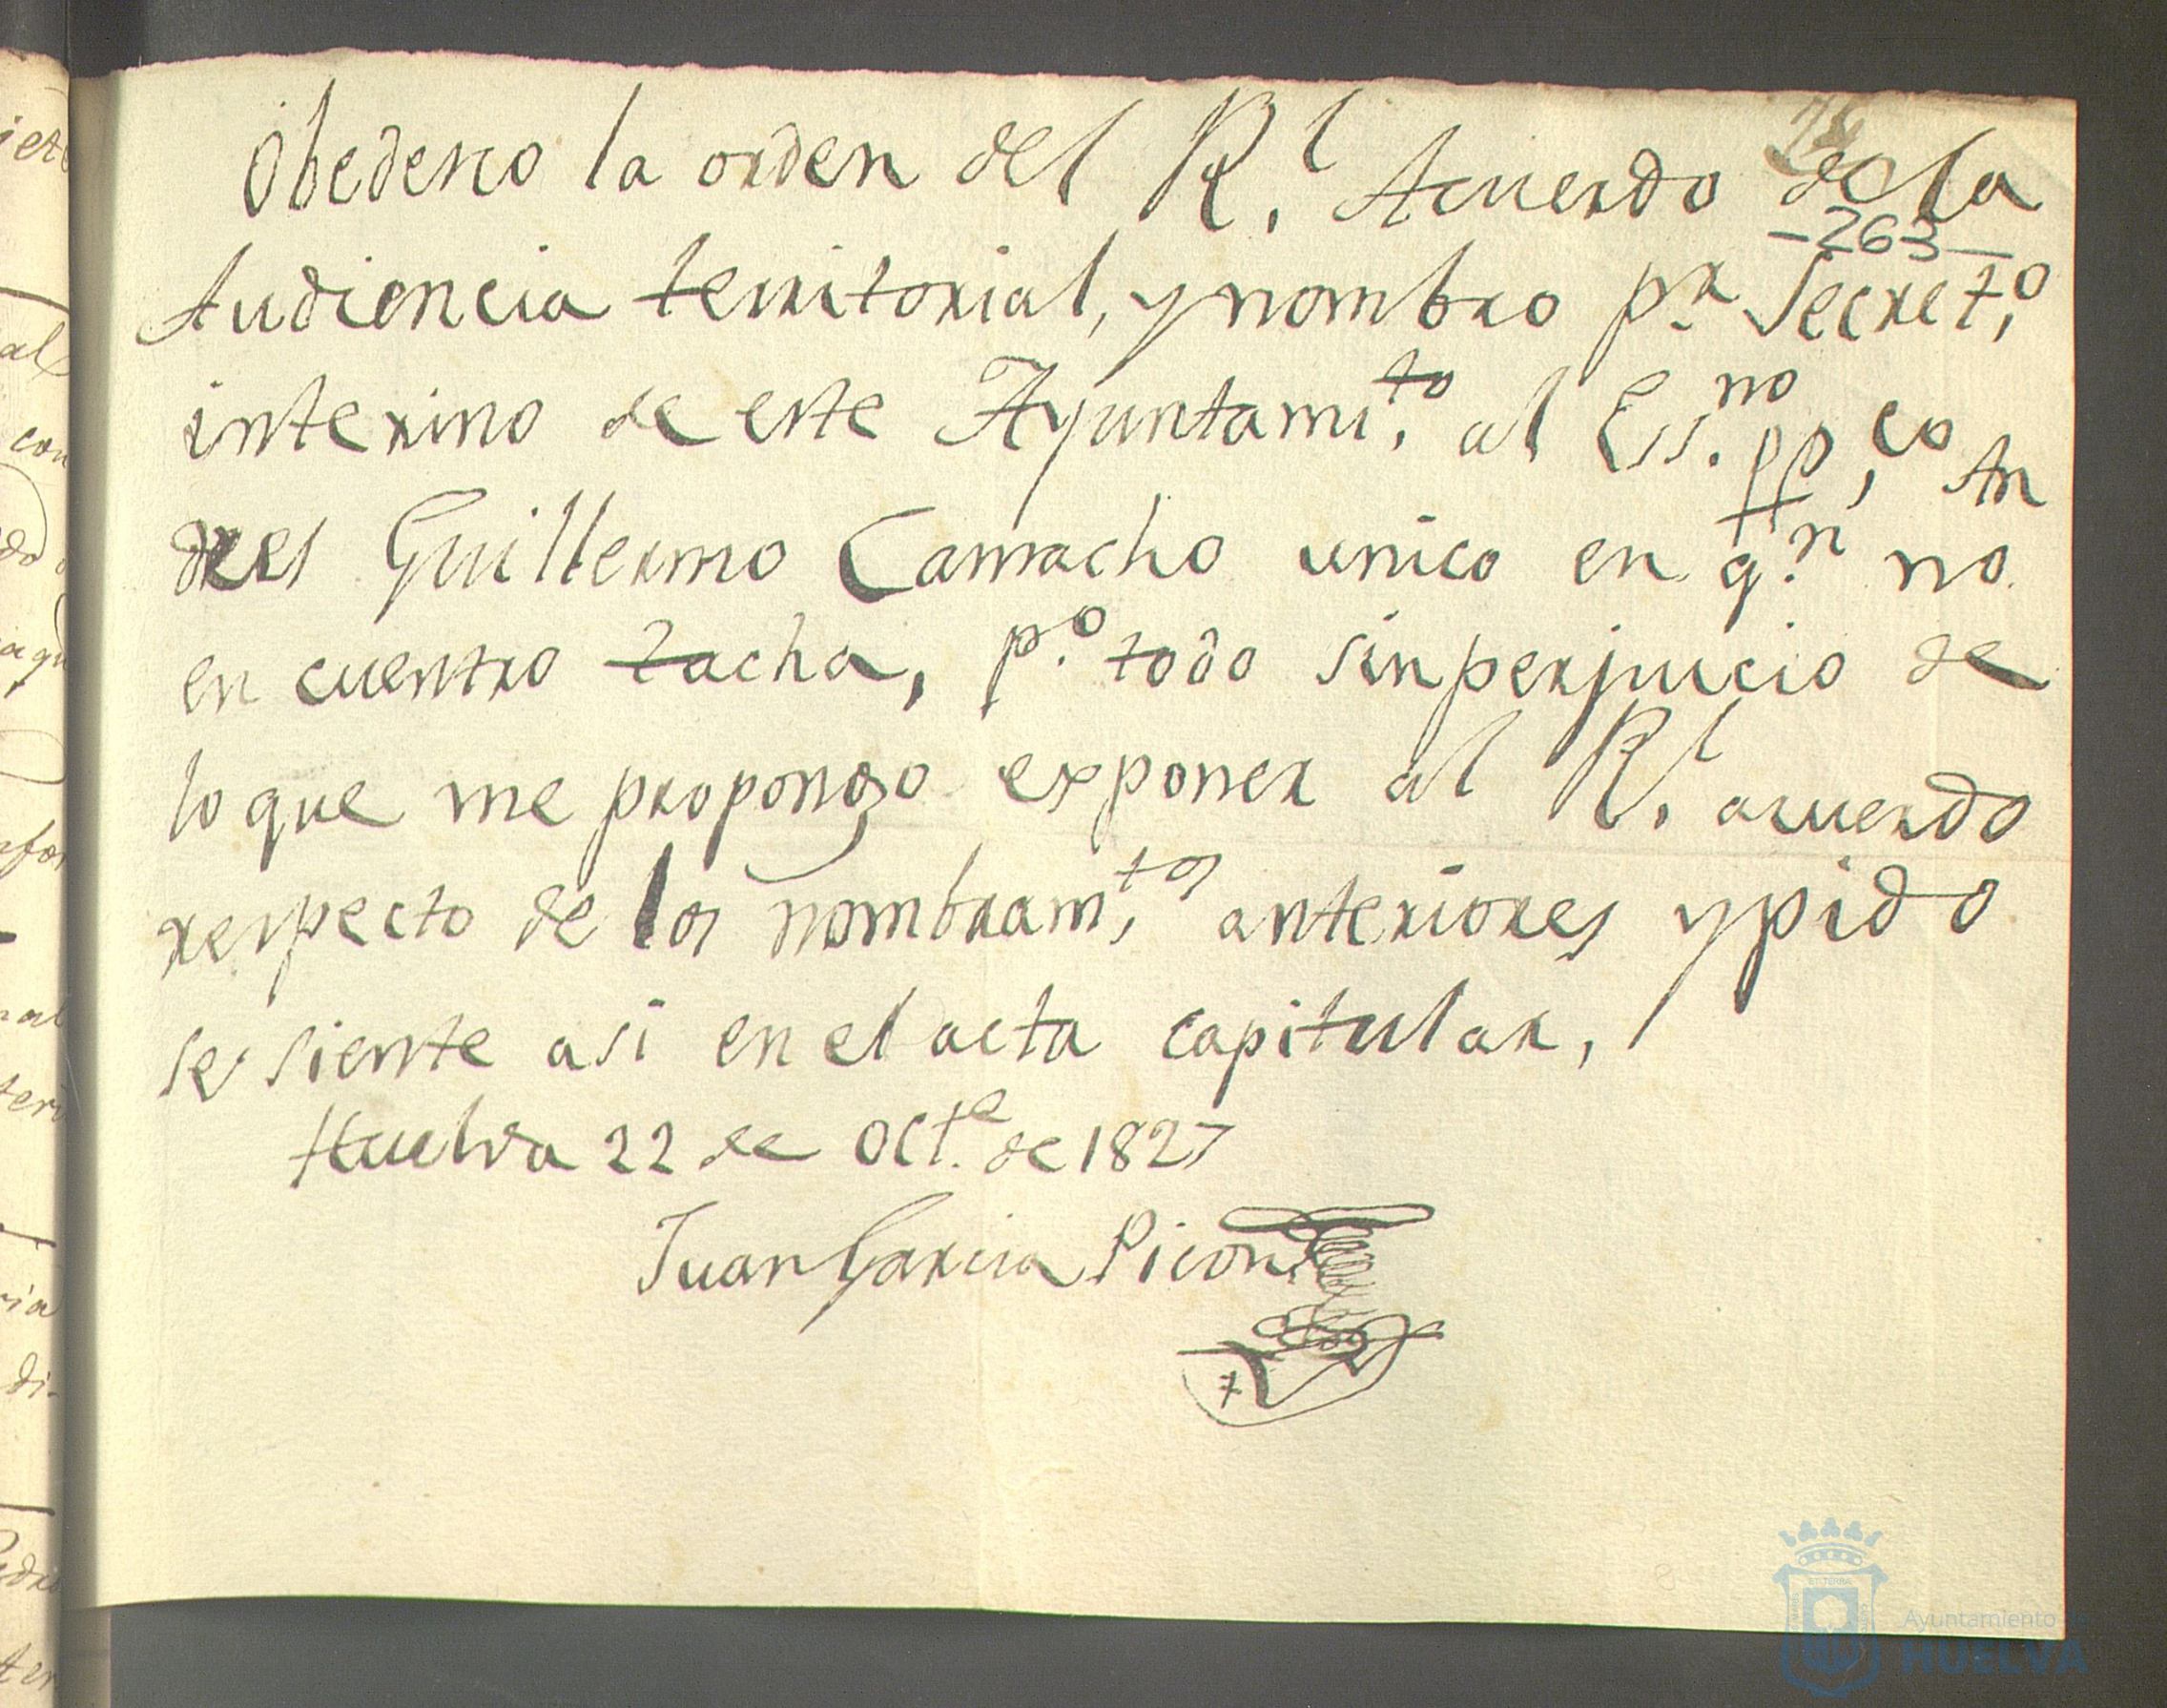 Obedesco la orden del R.l Acuerdo de la
-263-
Audiencia territorial, y nombro p.r Secret.o
interino de este Ayuntami.to al Ess.no pp,co An
dres Guillermo Camacho unico en q.n no
en cuentro tacha, p.o todo sin perjuicio de
lo que me propongo exponer al R.l acuerdo
respecto de los nombram.tos anteriores y pido
se siente asi en el acta capitular,
Huelva 22 de Oct.e de 1827
Juan Garcia Picon
Ayuntamiento de
HUELVA